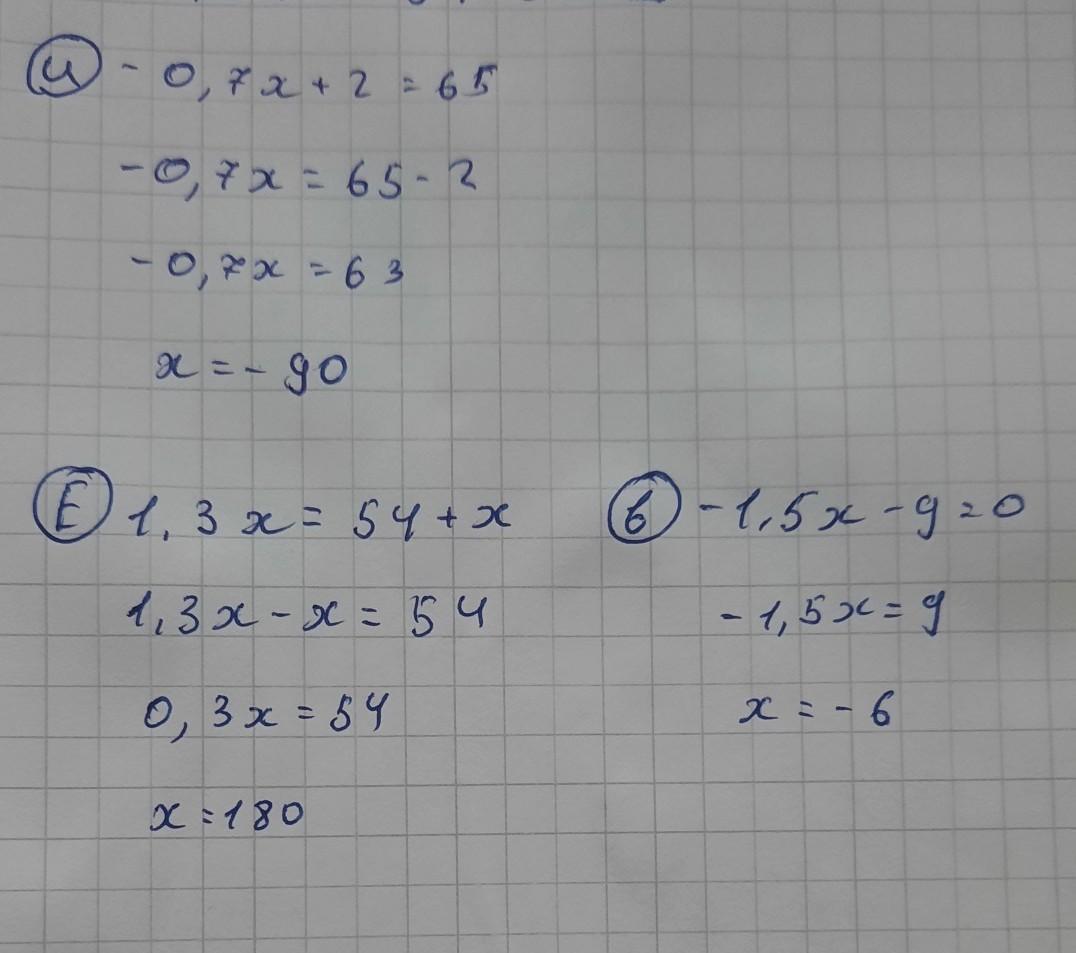 И - 0,7x + 2 = 65
-0,7x = 65 - 2
-0,7x = 63
x = - 90
Е 1,3x = 54 + x
1,3x - x = 54
0,3x = 54
x = 180
б -1,5x - 9 = 0
-1,5x = 9
x = - 6